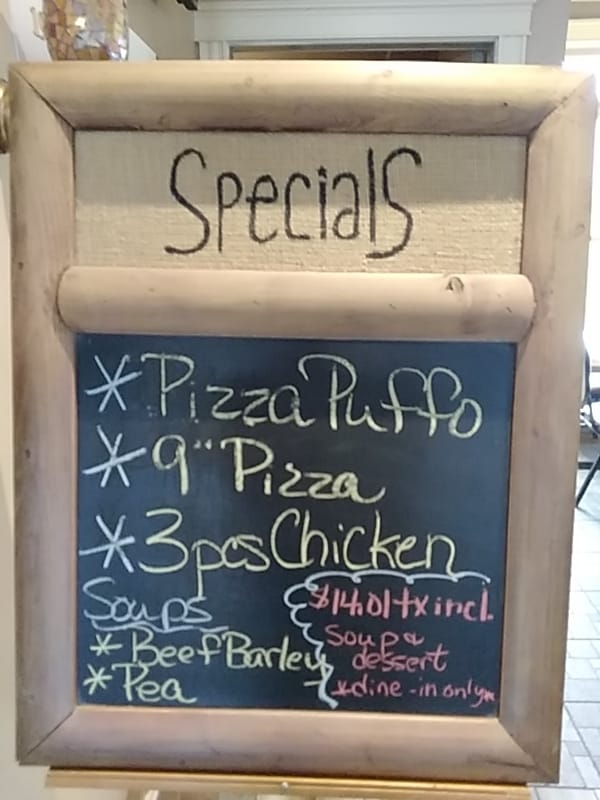 Specials
* Pizza Puffo
* 9" Pizza
* 3pcs Chicken
Soups
* Beef Barley
* Pea
$14.01 + tx incl.
Soup &
dessert
*dine-in only*